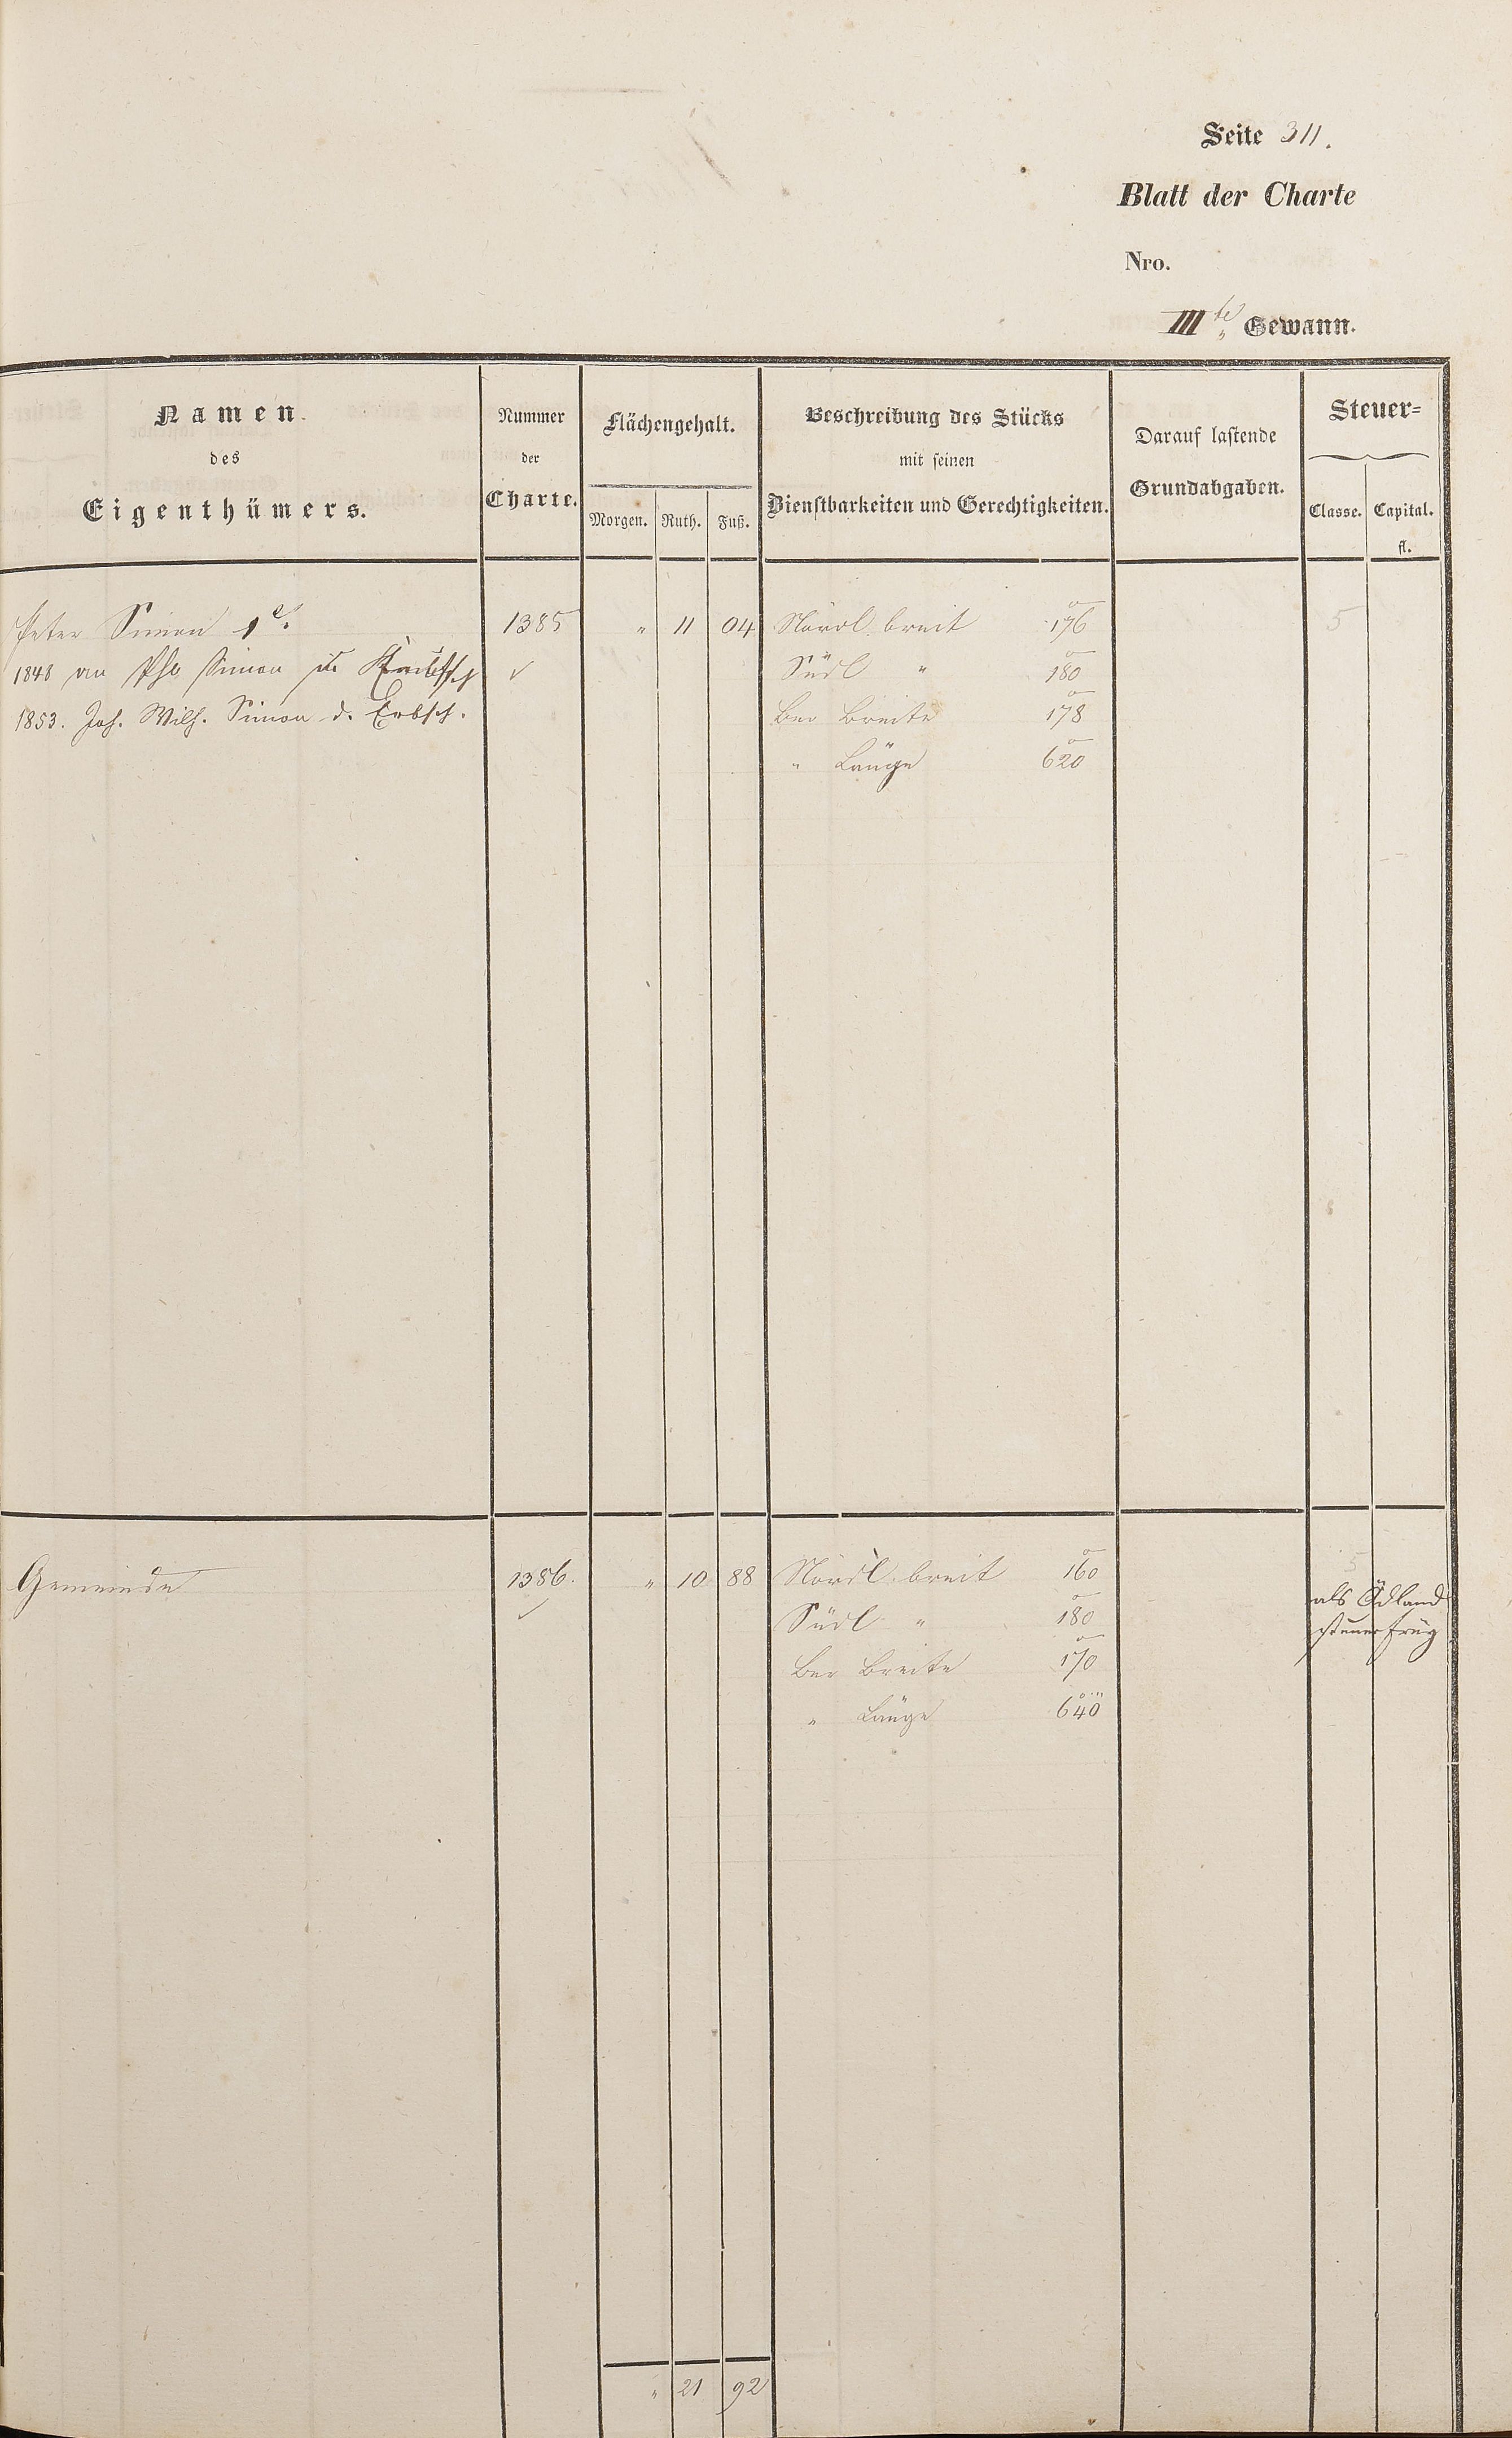 Seite 311.
Blatt der Charte
Nro.
III te Gewann.
Namen
des
Eigenthümers.
Nummer
der
Charte.
Flächengehalt.
Morgen. Ruth. Fuß.
Beschreibung des Stücks
mit seinen
Dienstbarkeiten und Gerechtigkeiten.
Darauf lastende
Grundabgaben.
Steuer=
Classe. Capital.
fl.
Peter Simon 1r. 1385 " 11 04 Nördl. breit 176 5
1848 an Phil. Simon ✓ Südl " 180
1853. Joh. Wilh. Simon d. Erbsch. Ber Breite 178
" Länge 620
Gemeinde 1386. " 10 88 Nördl. breit 160 5
✓ Südl " 180 als Ödland
Ber Breite 170 steuerfrey
" Länge 640
" 21 92